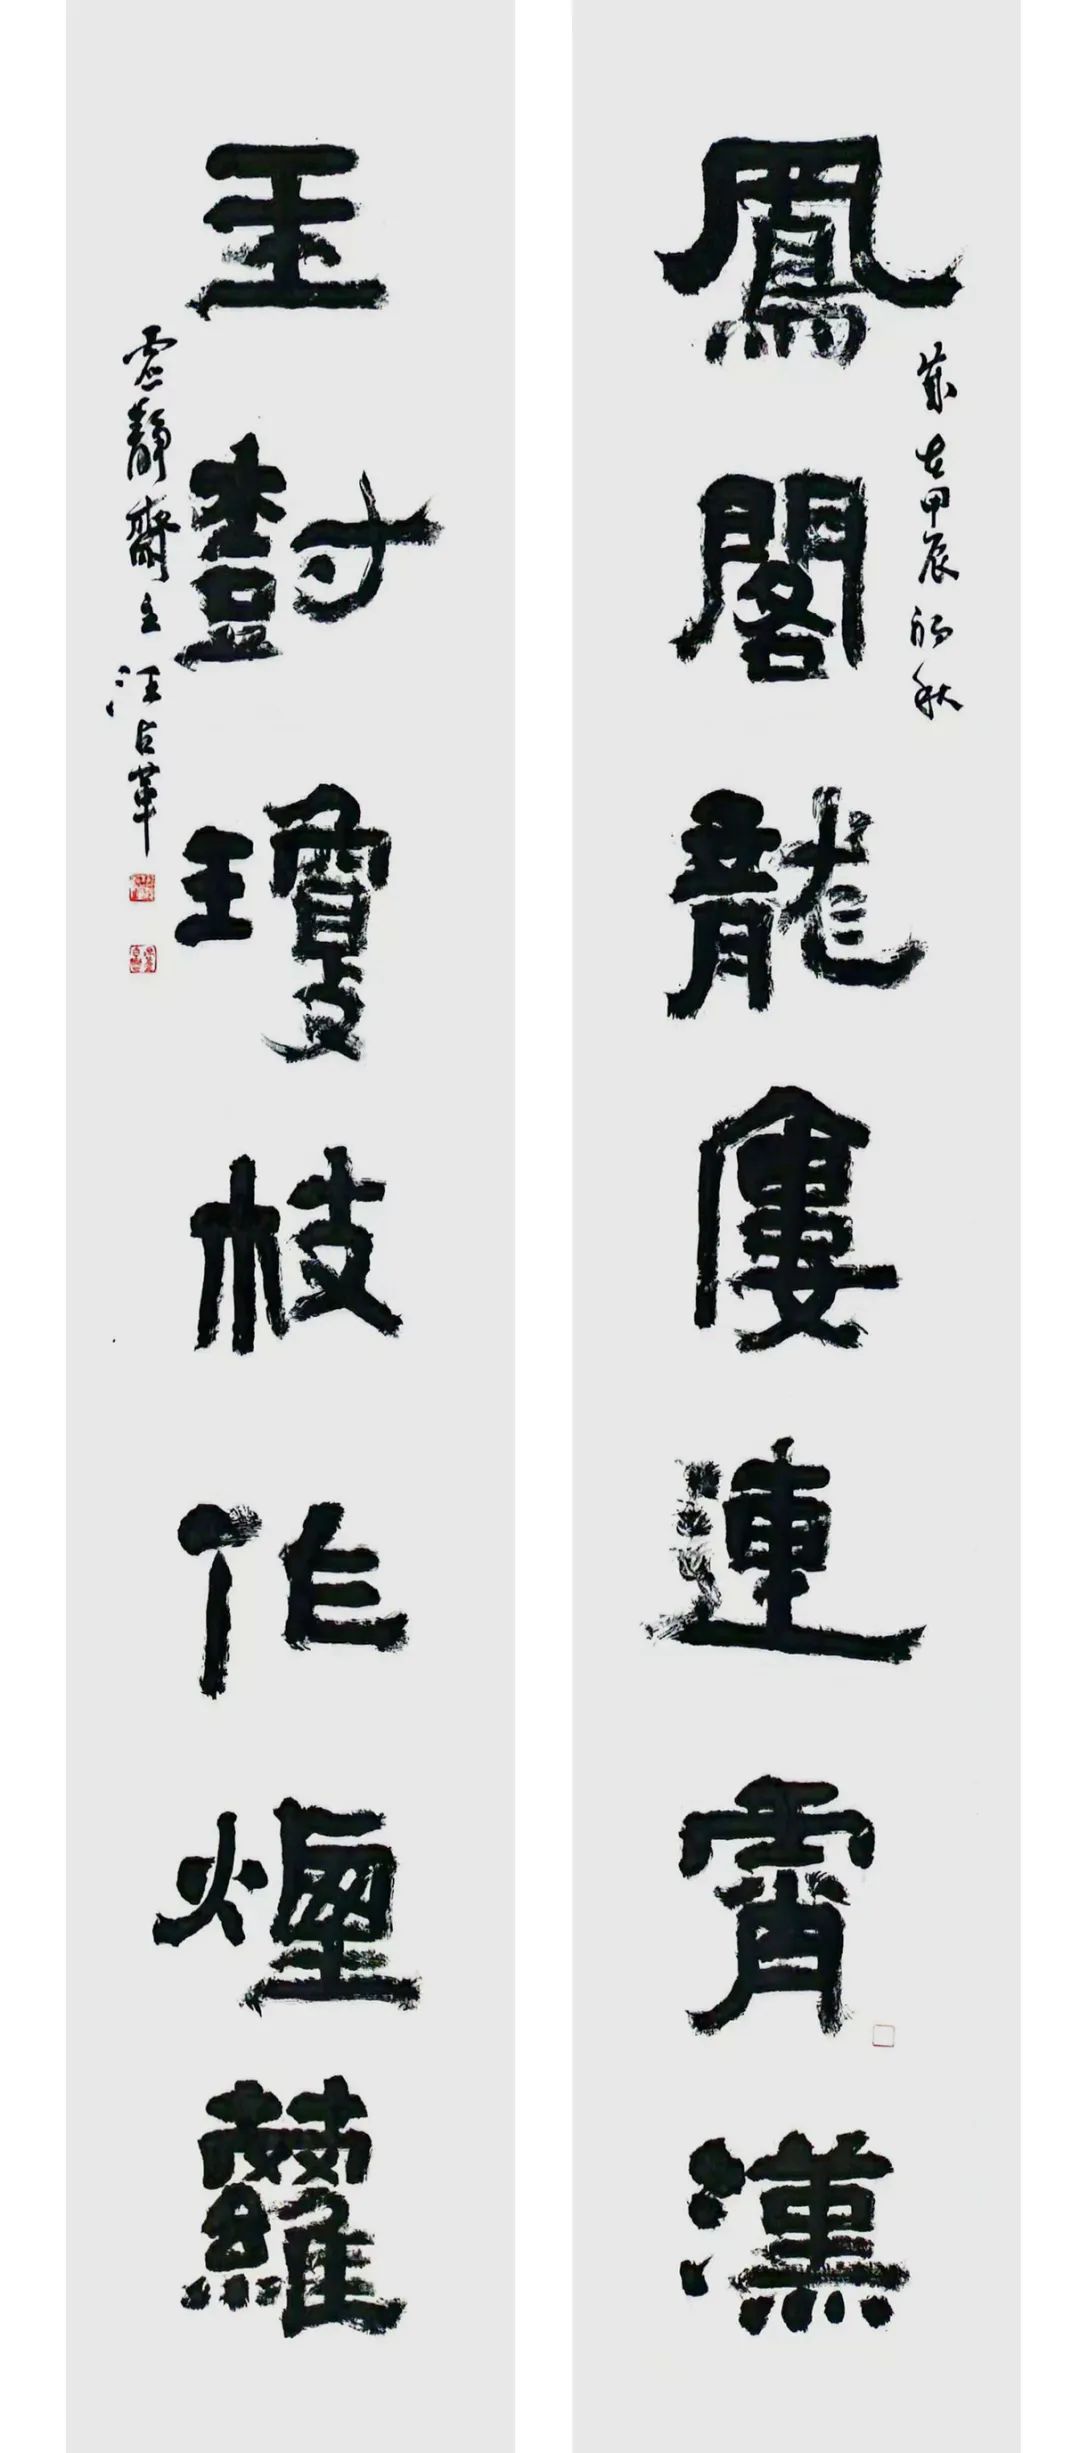 鳳閣龍廔連霄漢
歲在甲辰初秋
玉樹瓊枝作煙蘿
虛靜齋主汪占革